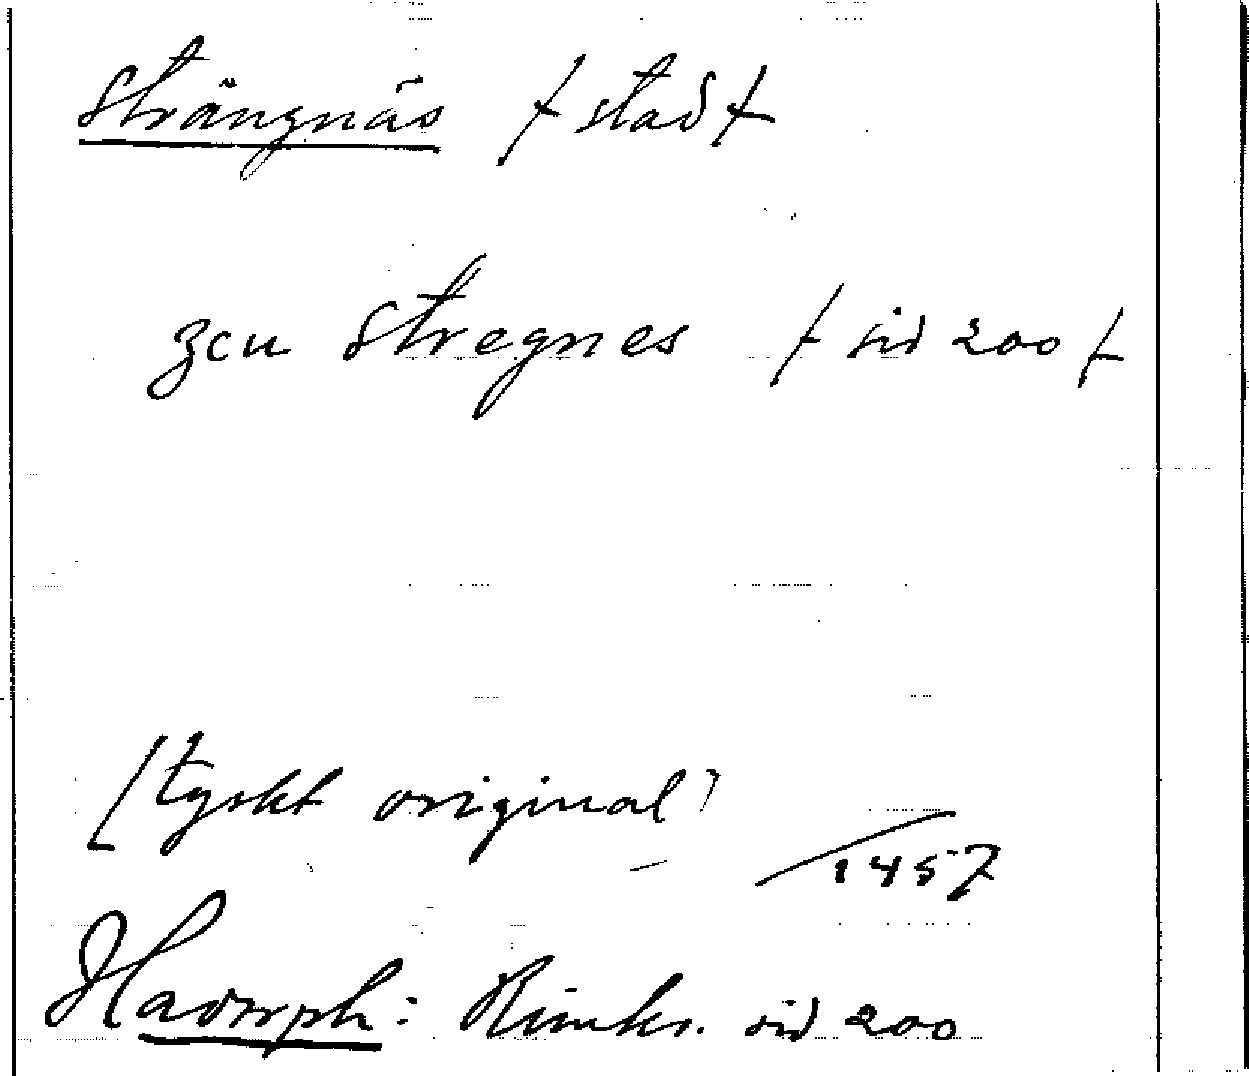 Strängnäs / stad /
zcu Stregnes / sid 200 /
[tyskt original]
1457
Hadorph: Rimkr. sid 200